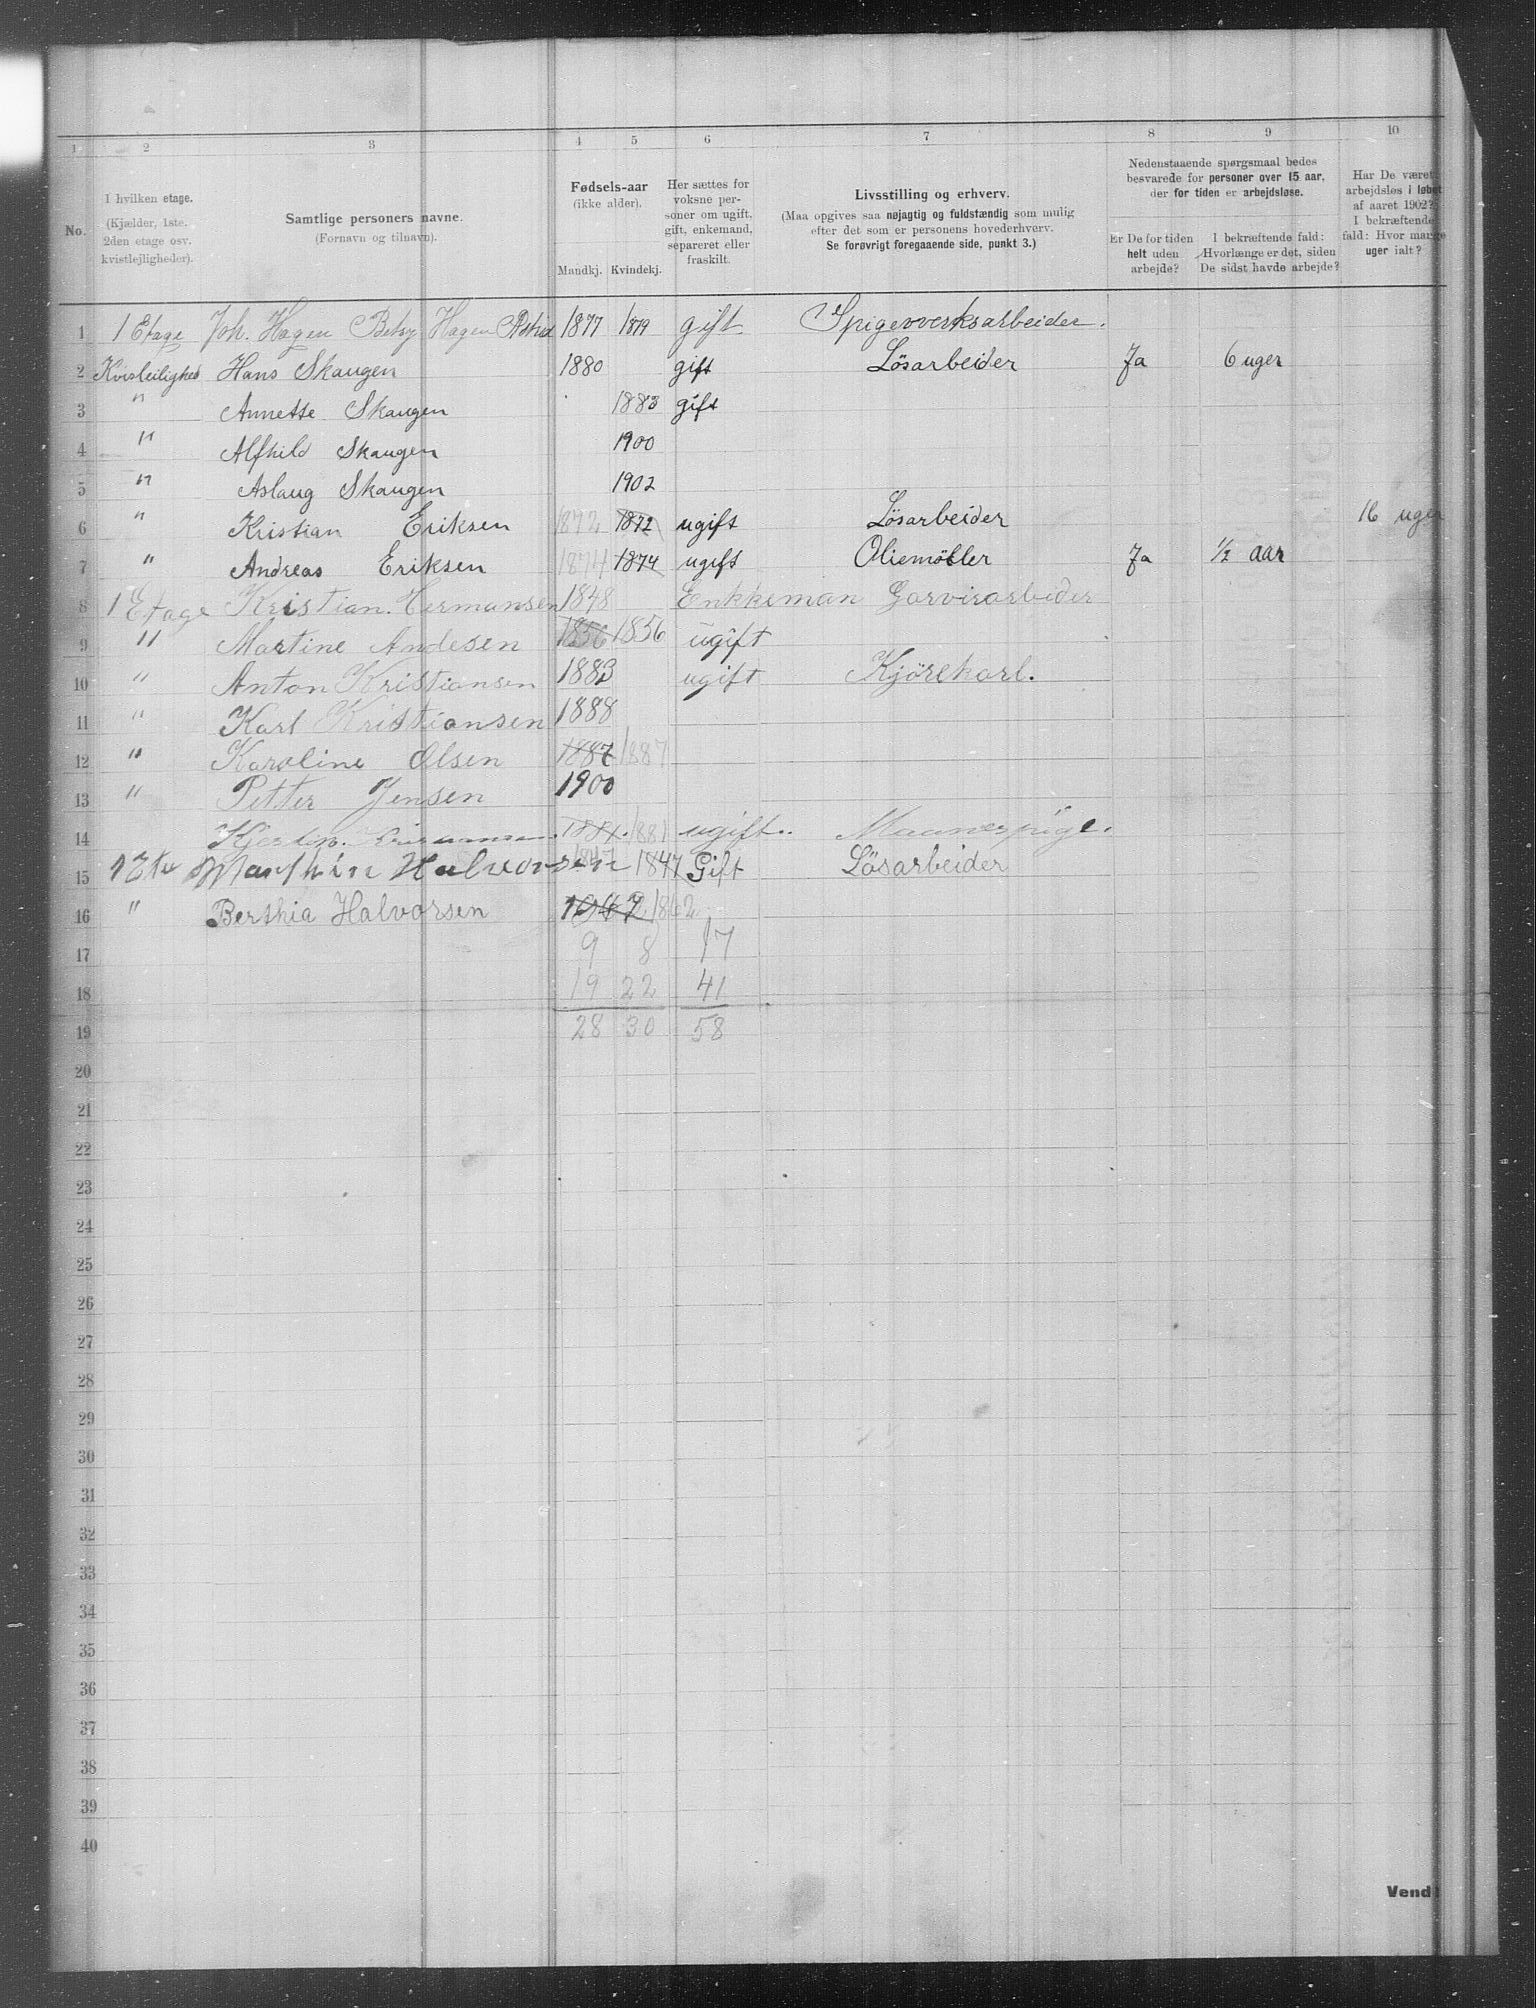 1 2 3 4 5 6 7 8 9 10
No.
I hvilken etage.
(Kjælder, 1ste.
2den etage osv.
kvistlejligheder).
Samtlige personers navne.
(Fornavn og tilnavn).
Fødsels-aar
(ikke alder).
Mandkj. Kvindekj.
Her sættes for
voksne per-
soner om ugift,
gift, enkemand,
separeret eller
fraskilt.
Livsstilling og erhverv.
(Maa opgives saa nøjagtig og fuldstændig som mulig
efter det som er personens hovederhverv.
Se forøvrigt foregaaende side, punkt 3.)
Nedenstaaende spørgsmaal bedes
besvarede for personer over 15 aar,
der for tiden er arbejdsløse.
Er De for tiden
helt uden
arbejde?
I bekræftende fald:
Hvorlænge er det, siden
De sidst havde arbejde?
Har De været
arbejdsløs i løbet
af aaret 1902?
I bekræftende
fald: Hvor mange
uger ialt?
1 1 Etage Joh. Hagen Betsy Hagen Astrid 1877 1879 gift Spigerverksarbeider.
2 Kvisleilighed Hans Skaugen 1880 gift Lösarbeider Ja 6 uger
3 " Annette Skaugen 1883 gift
4 " Alfhild Skaugen 1900
5 " Aslaug Skaugen 1902
6 " Kristian Eriksen 1872 1872 ugift Lösarbeider 16 uger
7 " Andreas Eriksen 1874 1874 ugift Oliemöller Ja 1/2 aar
8 1 Etage Kristian Hermansen 1848 Enkkeman Garvirarbeider
9 " Martine Andesen 1856 1856 ugift
10 " Anton Kristiansen 1883 ugift Kjörekarl.
11 " Karl Kristiansen 1888
12 " Karoline Olsen 1887 1887
13 " Petter Jensen 1900
14 1881 1881 ugift. Maanespige.
15 1 Etu Marthin Halvorsen 1847 1847 Gift Lösarbeider
16 " Berthia Halvorsen 1862
17 9 8 17
18 19 22 41
19 28 30 58
20
21
22
23
24
25
26
27
28
29
30
31
32
33
34
35
36
37
38
39
40
Vend!